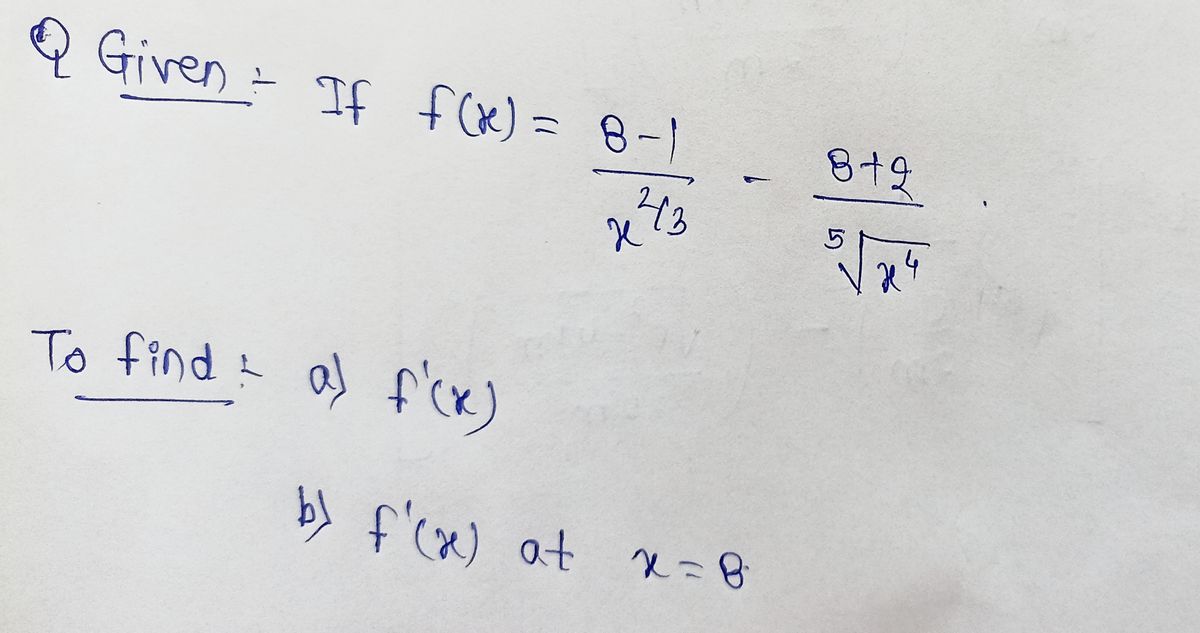 Q Given :- If f(x) = 8-1 / x^2/3 - 8+2 / ⁵√x⁴ .
To find :- a) f'(x)
b) f'(x) at x = 8